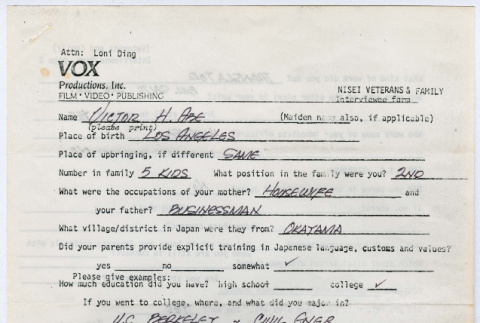 Attn: Loni Ding
VOX
Productions, Inc.
FILM · VIDEO · PUBLISHING
NISEI VETERANS & FAMILY
interviewee form
Name VICTOR H. ABE (Maiden name also, if applicable)
(please print)
Place of birth LOS ANGELES
Place of upbringing, if different SAME
Number in family 5 KIDS What position in the family were you? 2ND
What were the occupations of your mother? HOUSEWIFE and
your father? BUSINESSMAN
What village/district in Japan were they from? OKAYAMA
Did your parents provide explicit training in Japanese language, customs and values?
yes no somewhat ✓
Please give examples:
How much education did you have? high school college ✓
If you went to college, where, and what did you major in?
U.C. BERKELEY CIVIL ENGR